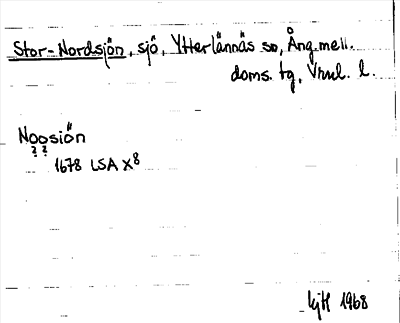 Stor-Nordsjön, sjö, Ytterlännäs sn, Ång. mell.
doms. tg, Vnl. l.
Noosiön
? ?
1678 LSA X8
1968